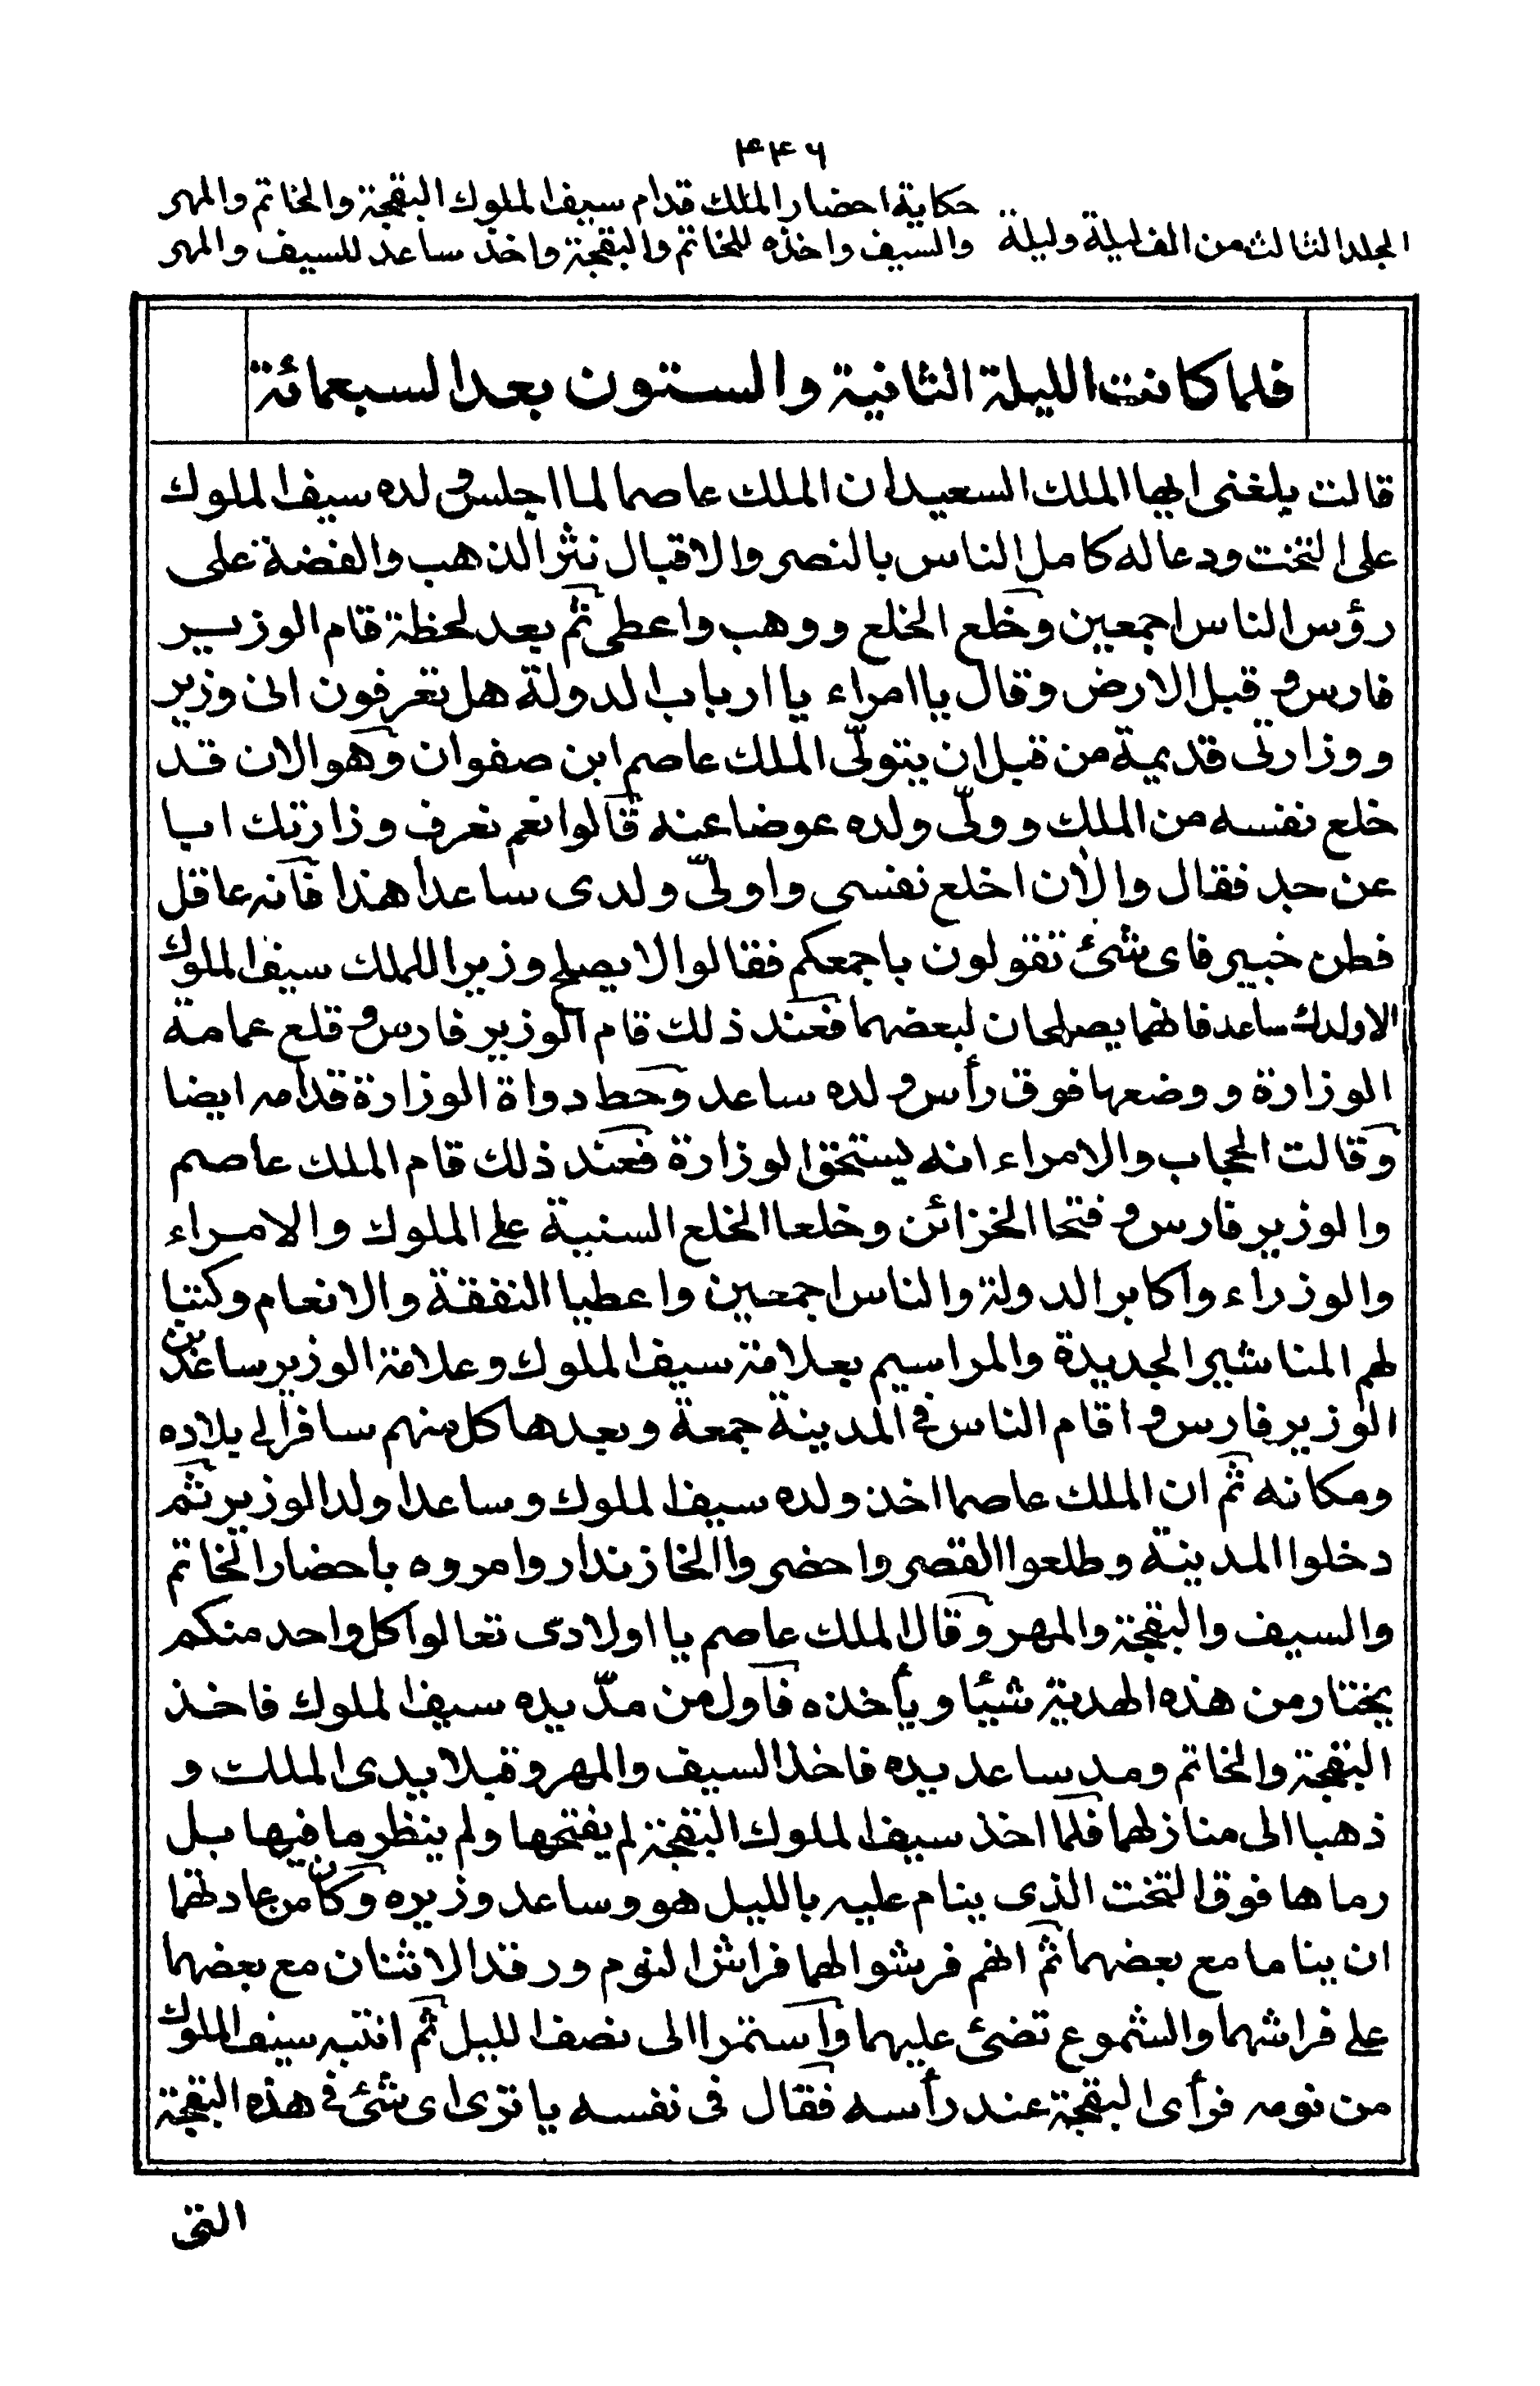 ۴۴۶
حكاية احضار الملك قدام سيف الملوك البقجة والخاتم والمهر
المجلد الثالث من الف ليلة وليلة والسيف واخذه للخاتم والبقجة واخذ ساعد للسيف والمهر
فلما كانت الليلة الثانية والستون بعد السبعمائة
قالت بلغنى ايها الملك السعيد ان الملك عاصما لما اجلس ولده سيف الملوك
على التخت ودعا له كامل الناس بالنصر والاقبال نثر الذهب والفضة على
رؤس الناس اجمعين وخلع الخلع ووهب واعطى ثم بعد لحظة قام الوزير
فارس و قبل الارض وقال يا امراء يا ارباب الدولة هل تعرفون انى وزير
ووزارتى قديمة من قبل ان يتولّى الملك عاصم ابن صفوان وهو الان قد
خلع نفسه من الملك وولّى ولده عوضا عنه قالوا نعم نعرف وزارتك ابا
عن جد فقال والان اخلع نفسى واولىّ ولدى ساعدا هذا فانه عاقل
فطن خبير فاى شئ تقولون باجمعكم فقالوا لا يصلح وزيرا للملك سيف الملوك
الا ولدك ساعد فانهما يصلحان لبعضهما فعند ذلك قام الوزير فارس و قلع عمامة
الوزارة ووضعها فوق رأس ولده ساعد وحط دواة الوزارة قدامه ايضا
وقالت الحجاب والامراء انه يستحق الوزارة فعند ذلك قام الملك عاصم
والوزير فارس و فتحا الخزائن وخلعا الخلع السنية على الملوك والامراء
والوزراء واكابر الدولة والناس اجمعين واعطيا النفقة والانعام وكتبا
لهم المناشير الجديدة والمراسيم بعلامة سيف الملوك وعلامة الوزير ساعد بن
الوزير فارس و اقام الناس فى المدينة جمعة وبعدها كل منهم سافر الى بلاده
ومكانه ثم ان الملك عاصما اخذ ولده سيف الملوك وساعدا ولد الوزير ثم
دخلوا المدينة وطلعوا القصر واحضروا الخازندار وامروه باحضار الخاتم
والسيف والبقجة والمهر وقال الملك عاصم يا اولادى تعالوا كل واحد منكم
يختار من هذه الهدية شيئا ويأخذه فاول من مدّ يده سيف الملوك فاخذ
البقجة والخاتم ومد ساعد يده فاخذ السيف والمهر وقبلا يدى الملك و
ذهبا الى منازلهما فلما اخذ سيف الملوك البقجة لم يفتحها ولم ينظر ما فيها بل
رماها فوق التخت الذى ينام عليه بالليل هو وساعد وزيره وكان من عادتهما
ان يناما مع بعضهما ثم انهم فرشوا لهما فراش النوم ورقد الاثنان مع بعضهما
على فراشهما والشموع تضئ عليهما واستمرا الى نصف الليل ثم انتبه سيف الملوك
من نومه فرأى البقجة عند رأسه فقال فى نفسه يا ترى اى شئ فى هذه البقجة
التى